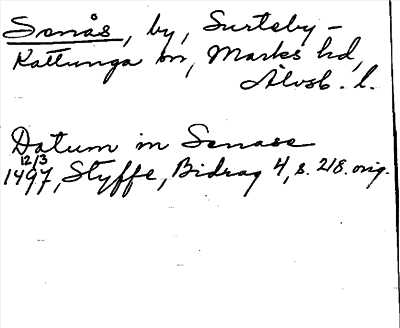 Senås, by, Surteby-
Kattunga sn, Marks hd,
Älvsb. l.
Datum in Senase
12/3
1497, Styffe, Bidrag 4, s. 218. orig.